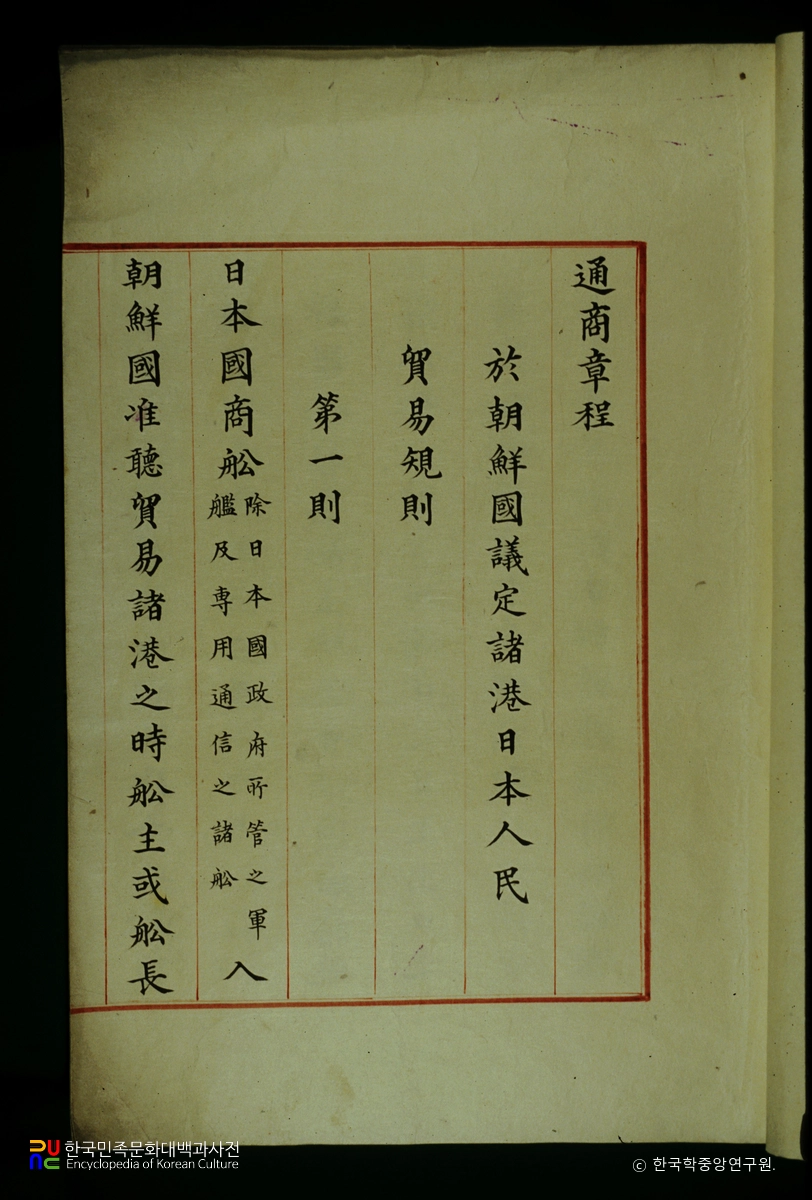 通商章程
於朝鮮國議定諸港日本人民
貿易規則
第一則
日本國商舩除日本國政府所管之軍艦及専用通信之諸舩入
朝鮮國准聽貿易諸港之時舩主或舩長
한국민족문화대백과사전
Encyclopedia of Korean Culture
ⓒ 한국학중앙연구원.